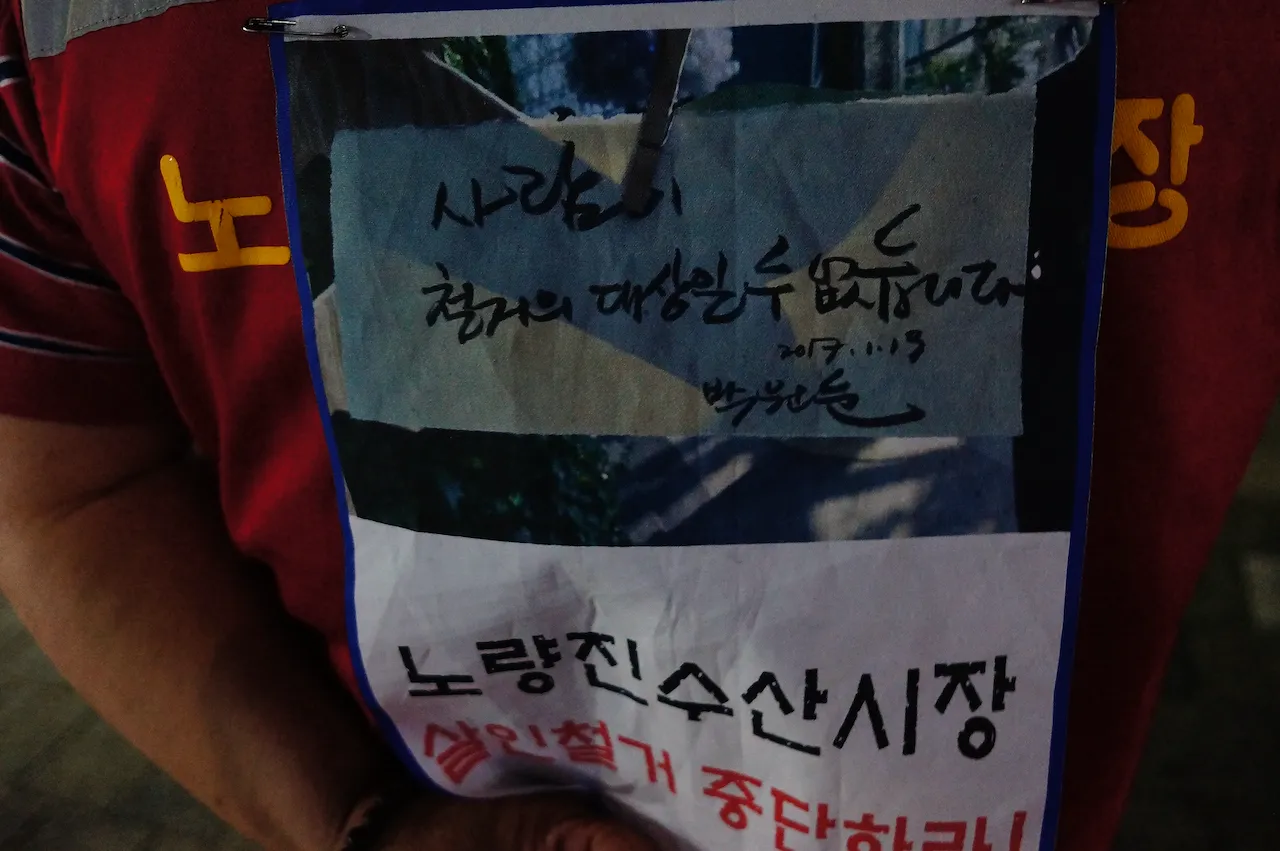 사람이
철거의 대상일 수 없습니다
2017.1.13
박원순
노
장
노량진수산시장
살인철거 중단하라!